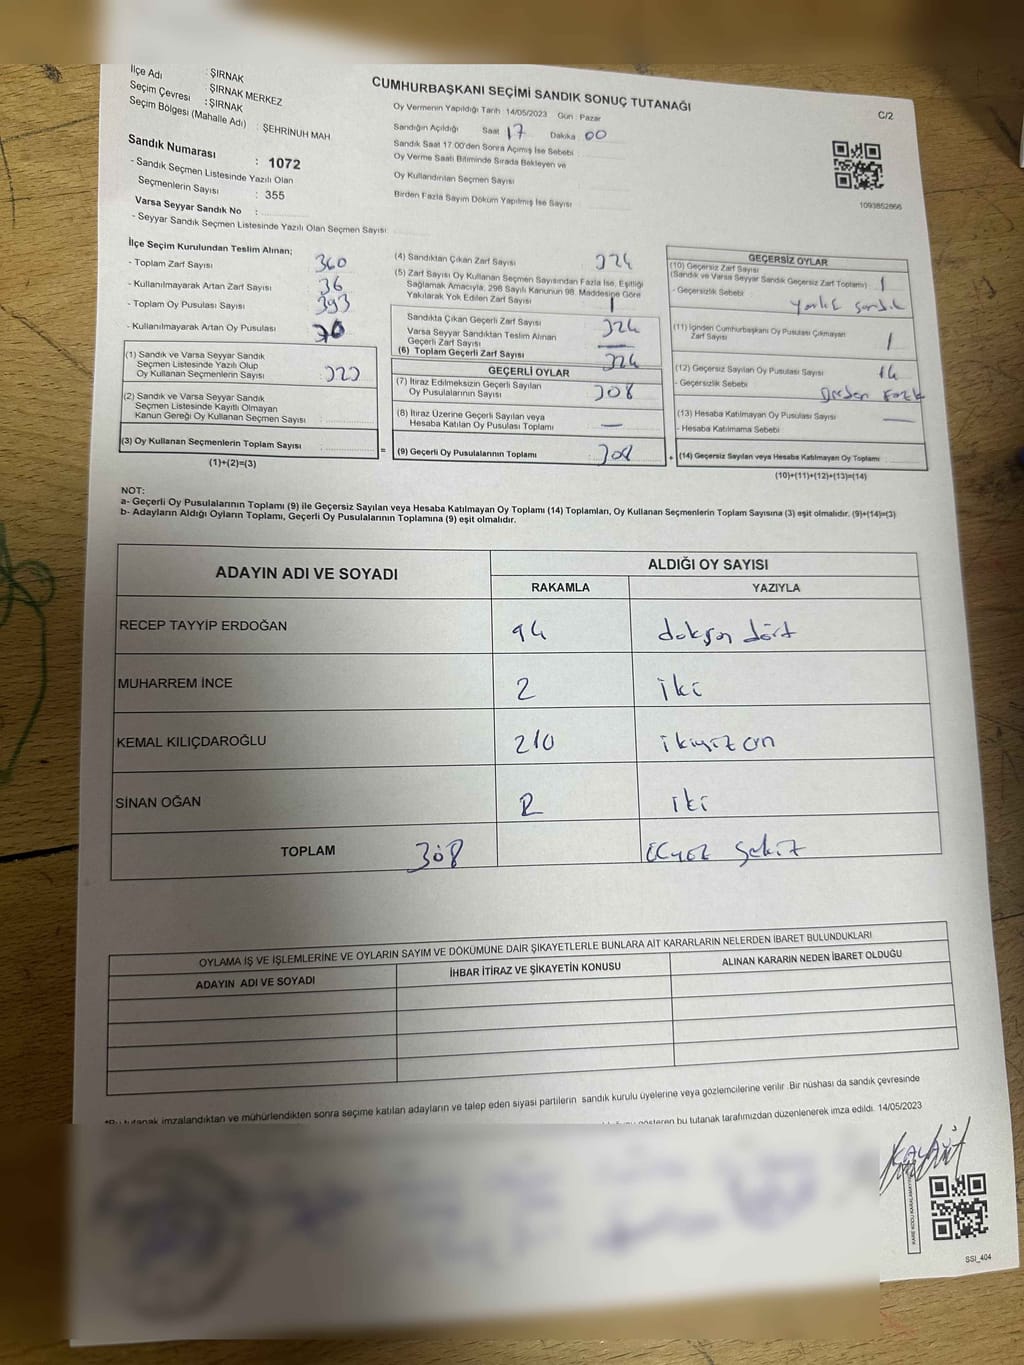 CUMHURBAŞKANI SEÇİMİ SANDIK SONUÇ TUTANAĞI
C/2
İlçe Adı : ŞIRNAK
Seçim Çevresi : ŞIRNAK MERKEZ
Seçim Bölgesi (Mahalle Adı) : ŞIRNAK
: ŞEHRİNUH MAH.
Sandık Numarası : 1072
- Sandık Seçmen Listesinde Yazılı Olan
Seçmenlerin Sayısı : 355
Varsa Seyyar Sandık No :
- Seyyar Sandık Seçmen Listesinde Yazılı Olan Seçmen Sayısı:
Oy Vermenin Yapıldığı Tarih 14/05/2023 Gün : Pazar
Sandığın Açıldığı Saat 17 Dakika 00
Sandık Saat 17.00'den Sonra Açımış İse Sebebi
Oy Verme Saati Bitiminde Sırada Bekleyen ve
Oy Kullandırılan Seçmen Sayısı
Birden Fazla Sayım Döküm Yapılmış İse Sayısı
1093852866
İlçe Seçim Kurulundan Teslim Alınan;
- Toplam Zarf Sayısı 360
- Kullanılmayarak Artan Zarf Sayısı 36
- Toplam Oy Pusulası Sayısı 393
- Kullanılmayarak Artan Oy Pusulası 70
(1) Sandık ve Varsa Seyyar Sandık
Seçmen Listesinde Yazılı Olup
Oy Kullanan Seçmenlerin Sayısı 323
(2) Sandık ve Varsa Seyyar Sandık
Seçmen Listesinde Kayıtlı Olmayan
Kanun Gereği Oy Kullanan Seçmen Sayısı
(3) Oy Kullanan Seçmenlerin Toplam Sayısı
(1)+(2)=(3)
(4) Sandıktan Çıkan Zarf Sayısı 324
(5) Zarf Sayısı Oy Kullanan Seçmen Sayısından Fazla İse, Eşitliği
Sağlamak Amacıyla, 298 Sayılı Kanunun 98. Maddesine Göre
Yakılarak Yok Edilen Zarf Sayısı 1
Sandıkta Çıkan Geçerli Zarf Sayısı 324
Varsa Seyyar Sandıktan Teslim Alınan
Geçerli Zarf Sayısı —
(6) Toplam Geçerli Zarf Sayısı 324
GEÇERLİ OYLAR
(7) İtiraz Edilmeksizin Geçerli Sayılan
Oy Pusulalarının Sayısı 308
(8) İtiraz Üzerine Geçerli Sayılan veya
Hesaba Katılan Oy Pusulası Toplamı —
= (9) Geçerli Oy Pusulalarının Toplamı 308 +
GEÇERSİZ OYLAR
(10) Geçersiz Zarf Sayısı
(Sandık ve Varsa Seyyar Sandık Geçersiz Zarf Toplamı) 1
- Geçersizlik Sebebi sandık
(11) İçinden Cumhurbaşkanı Oy Pusulası Çıkmayan
Zarf Sayısı 1
(12) Geçersiz Sayılan Oy Pusulası Sayısı 14
- Geçersizlik Sebebi Birden Fazla
(13) Hesaba Katılmayan Oy Pusulası Sayısı —
- Hesaba Katılmama Sebebi
(14) Geçersiz Sayılan veya Hesaba Katılmayan Oy Toplamı
(10)+(11)+(12)+(13)=(14)
NOT:
a- Geçerli Oy Pusulalarının Toplamı (9) ile Geçersiz Sayılan veya Hesaba Katılmayan Oy Toplamı (14) Toplamları, Oy Kullanan Seçmenlerin Toplam Sayısına (3) eşit olmalıdır. (9)+(14)=(3)
b- Adayların Aldığı Oyların Toplamı, Geçerli Oy Pusulalarının Toplamına (9) eşit olmalıdır.
ADAYIN ADI VE SOYADI
ALDIĞI OY SAYISI
RAKAMLA YAZIYLA
RECEP TAYYİP ERDOĞAN 94 doksan dört
MUHARREM İNCE 2 iki
KEMAL KILIÇDAROĞLU 210 ikiyüz on
SİNAN OĞAN 2 iki
TOPLAM 308 üçyüz sekiz
OYLAMA İŞ VE İŞLEMLERİNE VE OYLARIN SAYIM VE DÖKÜMÜNE DAİR ŞİKAYETLERLE BUNLARA AİT KARARLARIN NELERDEN İBARET BULUNDUKLARI
ADAYIN ADI VE SOYADI İHBAR İTİRAZ VE ŞİKAYETİN KONUSU ALINAN KARARIN NEDEN İBARET OLDUĞU
*Bu tutanak imzalandıktan ve mühürlendikten sonra seçime katılan adayların ve talep eden siyasi partilerin sandık kurulu üyelerine veya gözlemcilerine verilir. Bir nüshası da sandık çevresinde
gösteren bu tutanak tarafımızdan düzenlenerek imza edildi. 14/05/2023
SSI_404